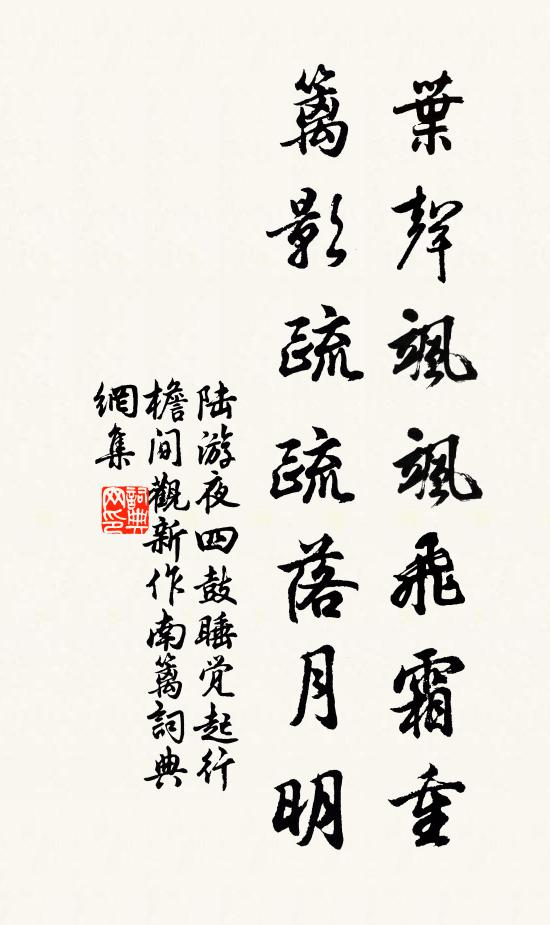 葉聲颯颯飛霜重
籬影疏疏落月明
陆游夜四鼓睡觉起行
檐间觀新作南籬詞典
網集
詞典
网印